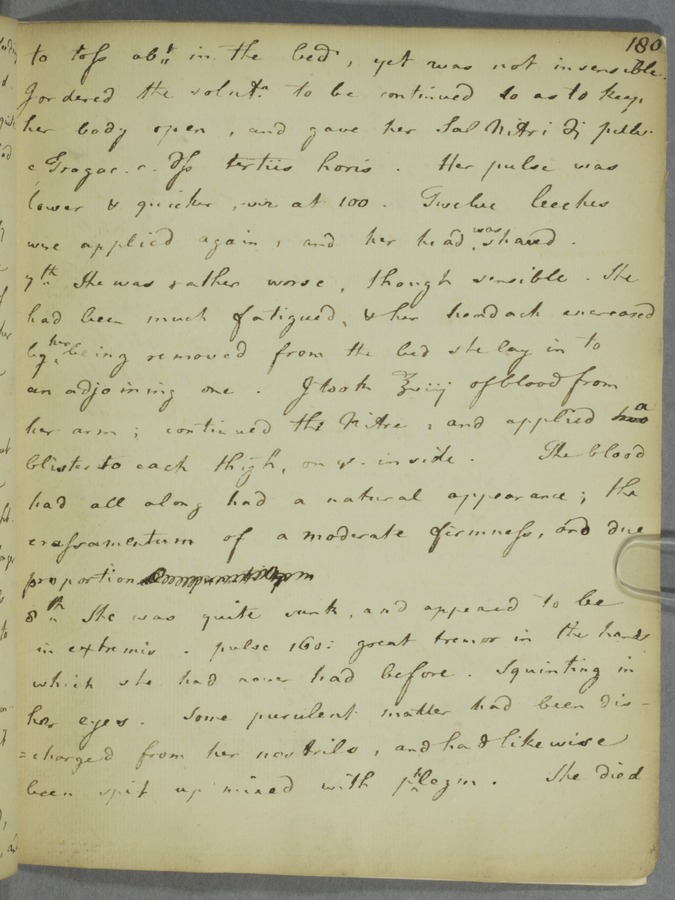 180
to toss abt. in the bed, yet was not insensible.
I ordered the solutn. to be continued so as to keep
her body open, and gave her Sal Nitri ʒj pulv.
e Tragac. c. ʒſs tertiis horis. Her pulse was
lower & quicker, viz. at 100. Twelve leeches
were applied again, and her head was shaved.
7th. She was rather worse, though sensible. She
had been much fatigued, & her headach encreased
by her being removed from the bed she lay in to
an adjoining one. I took ℥iiij of blood from
her arm; continued the Nitre, and applied a
blister to each thigh, on ye. inside. The blood
had all along had a natural appearance; the
crassamentum of a moderate firmness, and due
proportion
8th. She was quite sunk, and appeared to be
in extremis. pulse 160: great tremor in the hands
which she had never had before. Squinting in
her eyes. Some purulent matter had been dis-
=charged from her nostrils, and had likewise
been spit up mixed with phlegm. She died